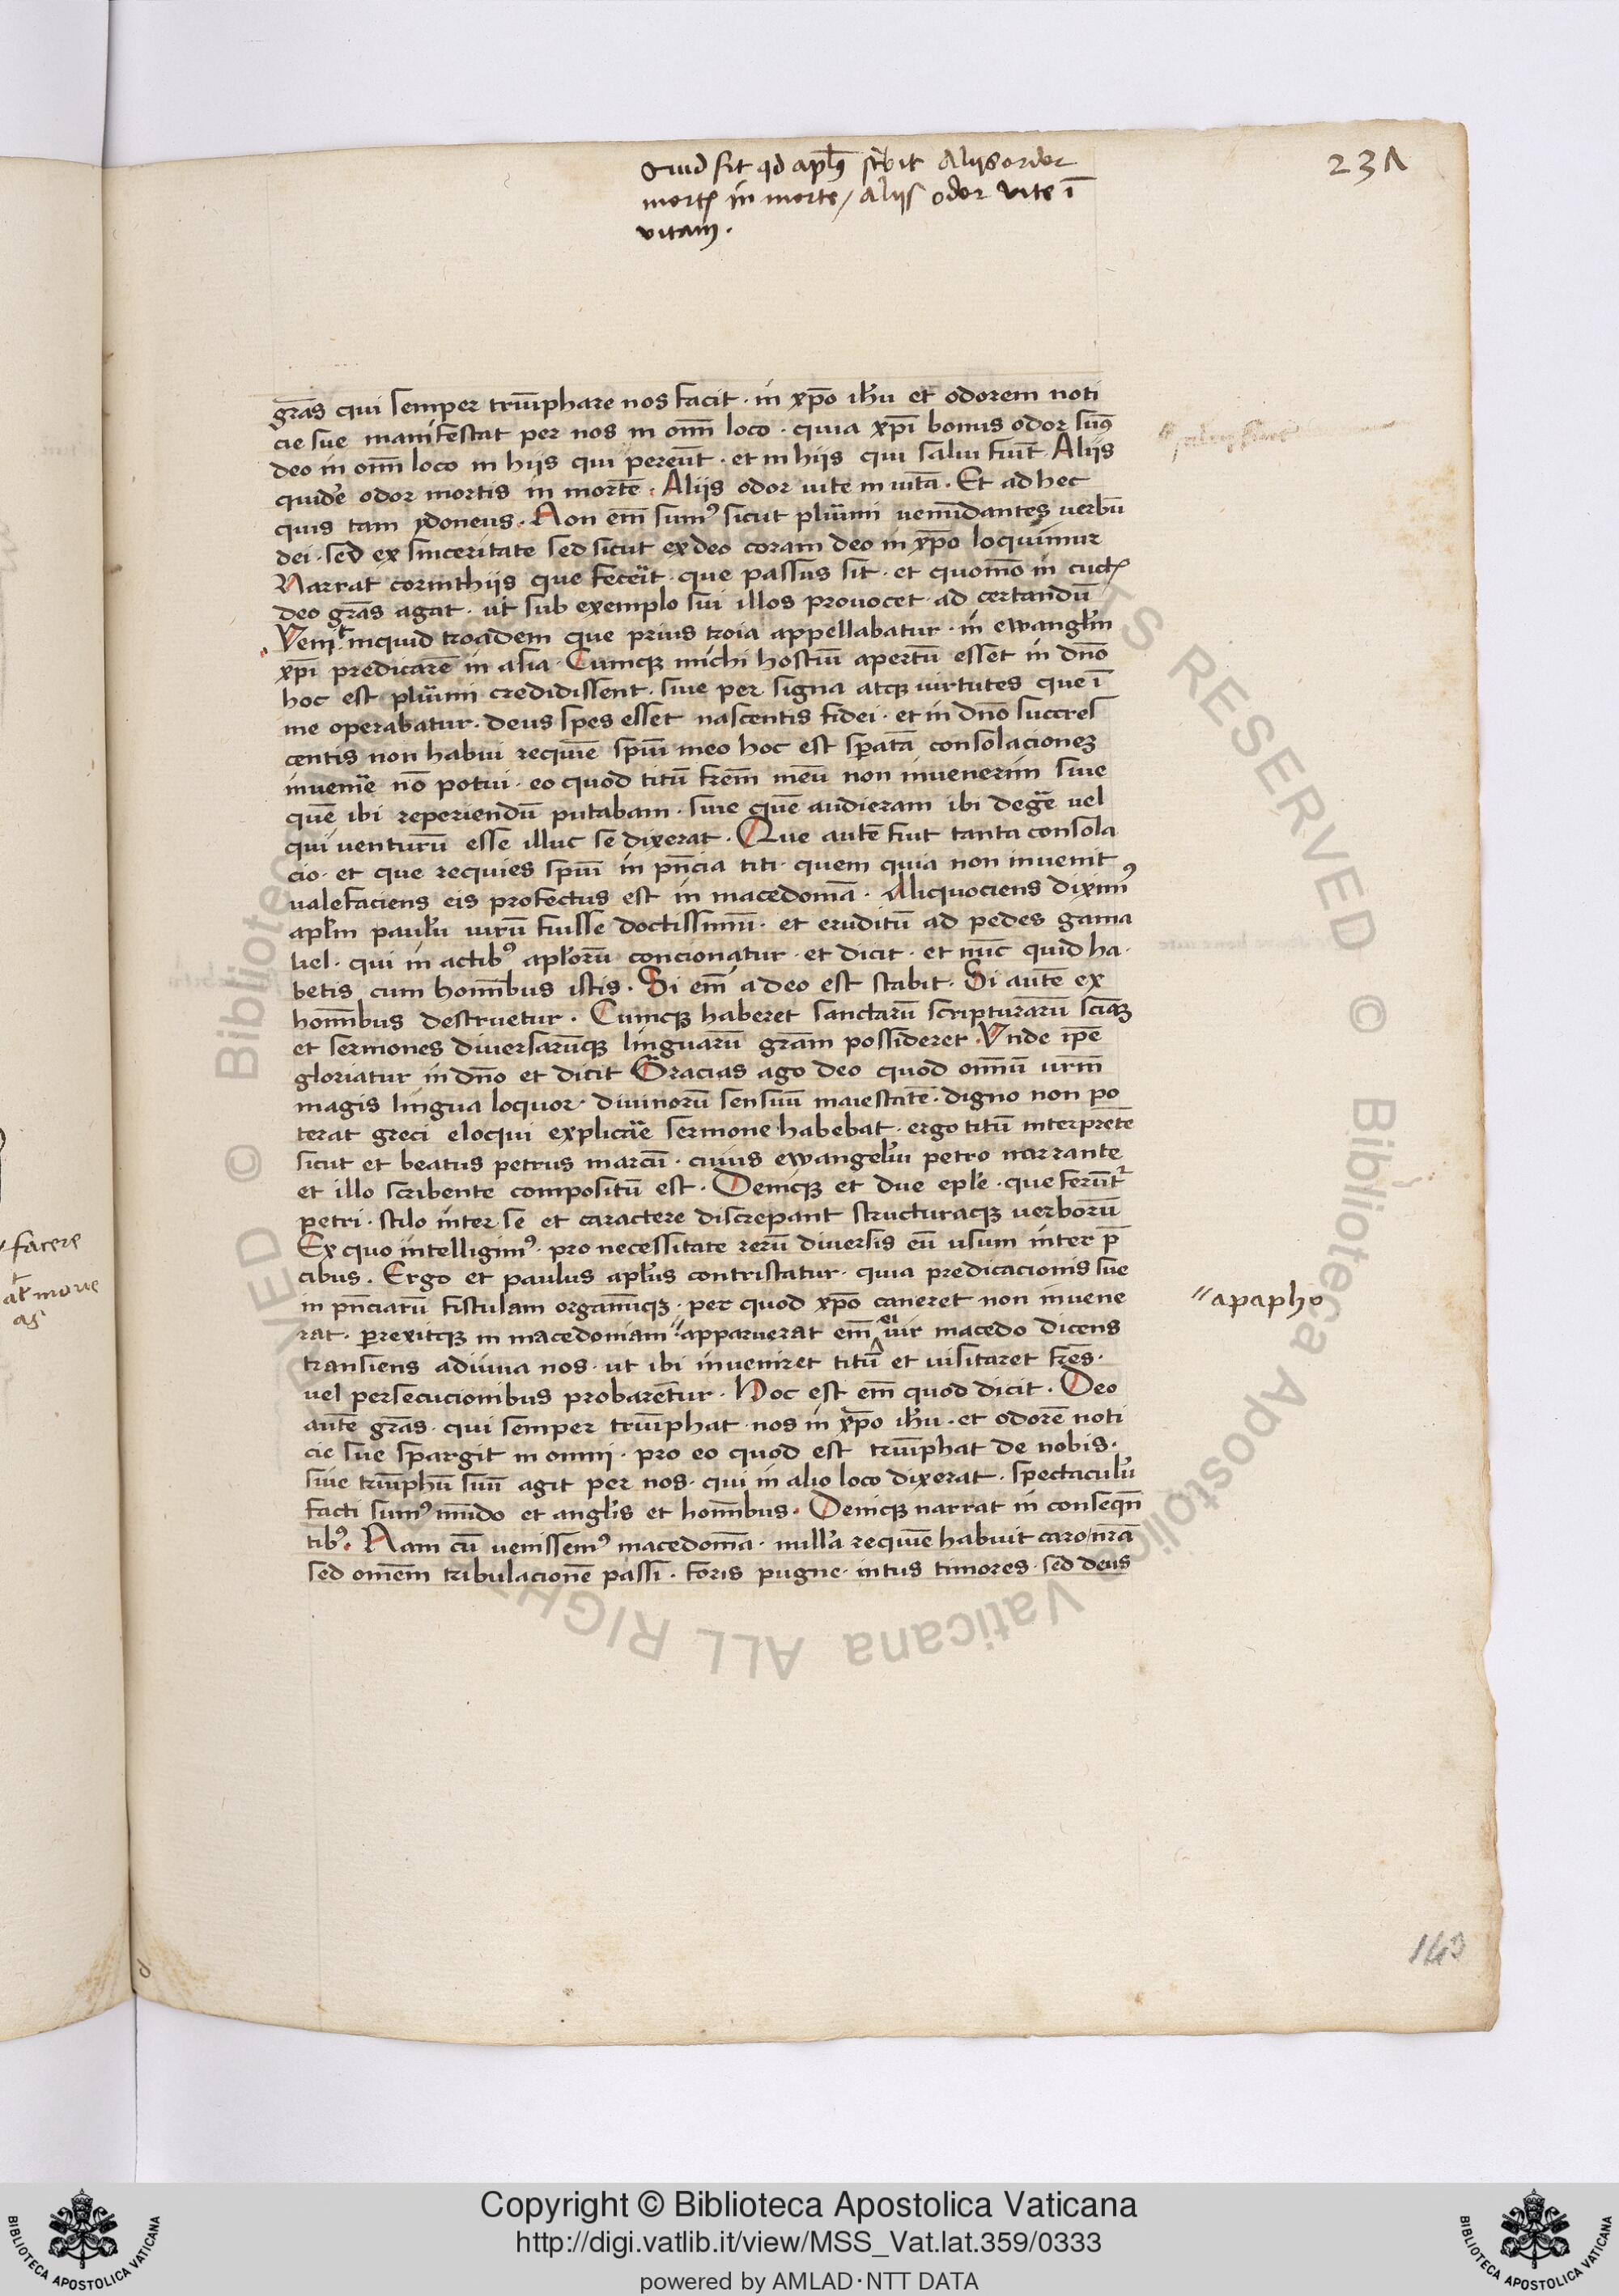 Quid sit qd aplūs scbit Aliis ordor
mortꝭ in morte / aliis odor vite ī
vitam.
231
grās qui semper triūphare nos facit · in xp̄o ihū et odorem noti
cie sue manifestat per nos in om̄i loco · quia xp̄i bonus odor sumꝰ
deo in om̄i loco in hiis qui pereūt · et in hiis qui salui fiūt · Aliis
quidē odor mortis in mortē · Aliis odor uite in uitā · Et ad hec
quis tam ydoneus · Non em̄ sumꝰ sicut plurimi uenūdantes uerbū
dei · sed ex sinceritate sed sicut ex deo coram deo in xp̄o loquimur
Narrat corinthiis que fecerit · que passus sit · et quomō in cūctꝭ
deo grās agat · ut sub exemplo sui illos prouocet · ad certandū
Veni inquid troadem que prius troia appellabatur · in ewangłm
xp̄i predicare in asia · Cumqꝫ michi hostiū apertū esset in dn̄o
hoc est plurimi credidissent · siue per signa atqꝫ uirtutes que ī
me operabatur · deus spes esset nascentis fidei · et in dn̄o succres
centis non habui requiē spūi meo hoc est speratā consolacionez
inuenire nō potui · eo quod titū frēm meū non inuenerim siue
quē ibi reperiendū putabam · siue quē audieram ibi degere uel
qui uenturū esse illuc se dixerat · Que autē fuit tanta consola
cio · et que requies spūi in pn̄cia titi · quem quia non inuenit
ualefaciens eis profectus est in macedoniā · Aliquociens diximꝰ
apłm paulū uirū fuisse doctissimū · et eruditū ad pedes gama
liel · qui in actibꝰ aplorū concionatur · et dicit · et nūc quid ha·
betis cum hominibus istis · Si em̄ a deo est stabit · Si autē ex
hominibus destruetur · Cumqꝫ haberet sanctarū scripturarū sciam
et sermones diuersarūqꝫ linguarū grām possideret · Vnde ip̄e
gloriatur in dn̄o et dicit Gracias ago deo quod omnū urm̄
magis lingua loquor · diuinorū sensuū maiestatē · digno non po
terat greci eloqui explicare sermone · habebat · ergo titū interpretē
sicut et beatus petrus marcū · cuius ewangeliū petro narrante
et illo scribente compositū est · Deniqꝫ et due eple · que ferūtr
petri · stilo inter se et caractere discrepant structuraqꝫ uerborū
Ex quo intelligimꝰ · pro necessitate rerū diuersis eū usum inter p̄
tibus · Ergo et paulus aplus contristatur · quia predicacionis sue
in pn̄ciarū fistulam organūqꝫ · per quod xp̄o caneret · non inuene
rat · perrexitqꝫ in macedoniam · " apparuerat em̄ ei uir macedo dicens
transiens adiuua nos · ut ibi inueniret titū et uisitaret frēs ·
uel persecucionibus probarentur · Hoc est em̄ quod dicit · Deo
autē grās · qui semper triūphat nos in xp̄o ihū · et odorē noti
cie sue spargit in omni · pro eo quod est triūphat de nobis ·
siue triūphū suū agit per nos · qui in alio loco dixerat · spectaculū
facti sumꝰ mūdo et anglis et hominibus · Deniqꝫ narrat in conseqn̄
tibꝰ · Nam cū uenissemꝰ macedoniā · nullā requiē habuit caro / nrā
sed omēm tribulacionē passi · foris pugne · intus timores · sed deus
" apapho
"facere
143
Copyright © Biblioteca Apostolica Vaticana
http://digi.vatlib.it/view/MSS_Vat.lat.359/0333
powered by AMLAD·NTT DATA
BIBLIOTECA APOSTOLICA VATICANA
BIBLIOTECA APOSTOLICA VATICANA